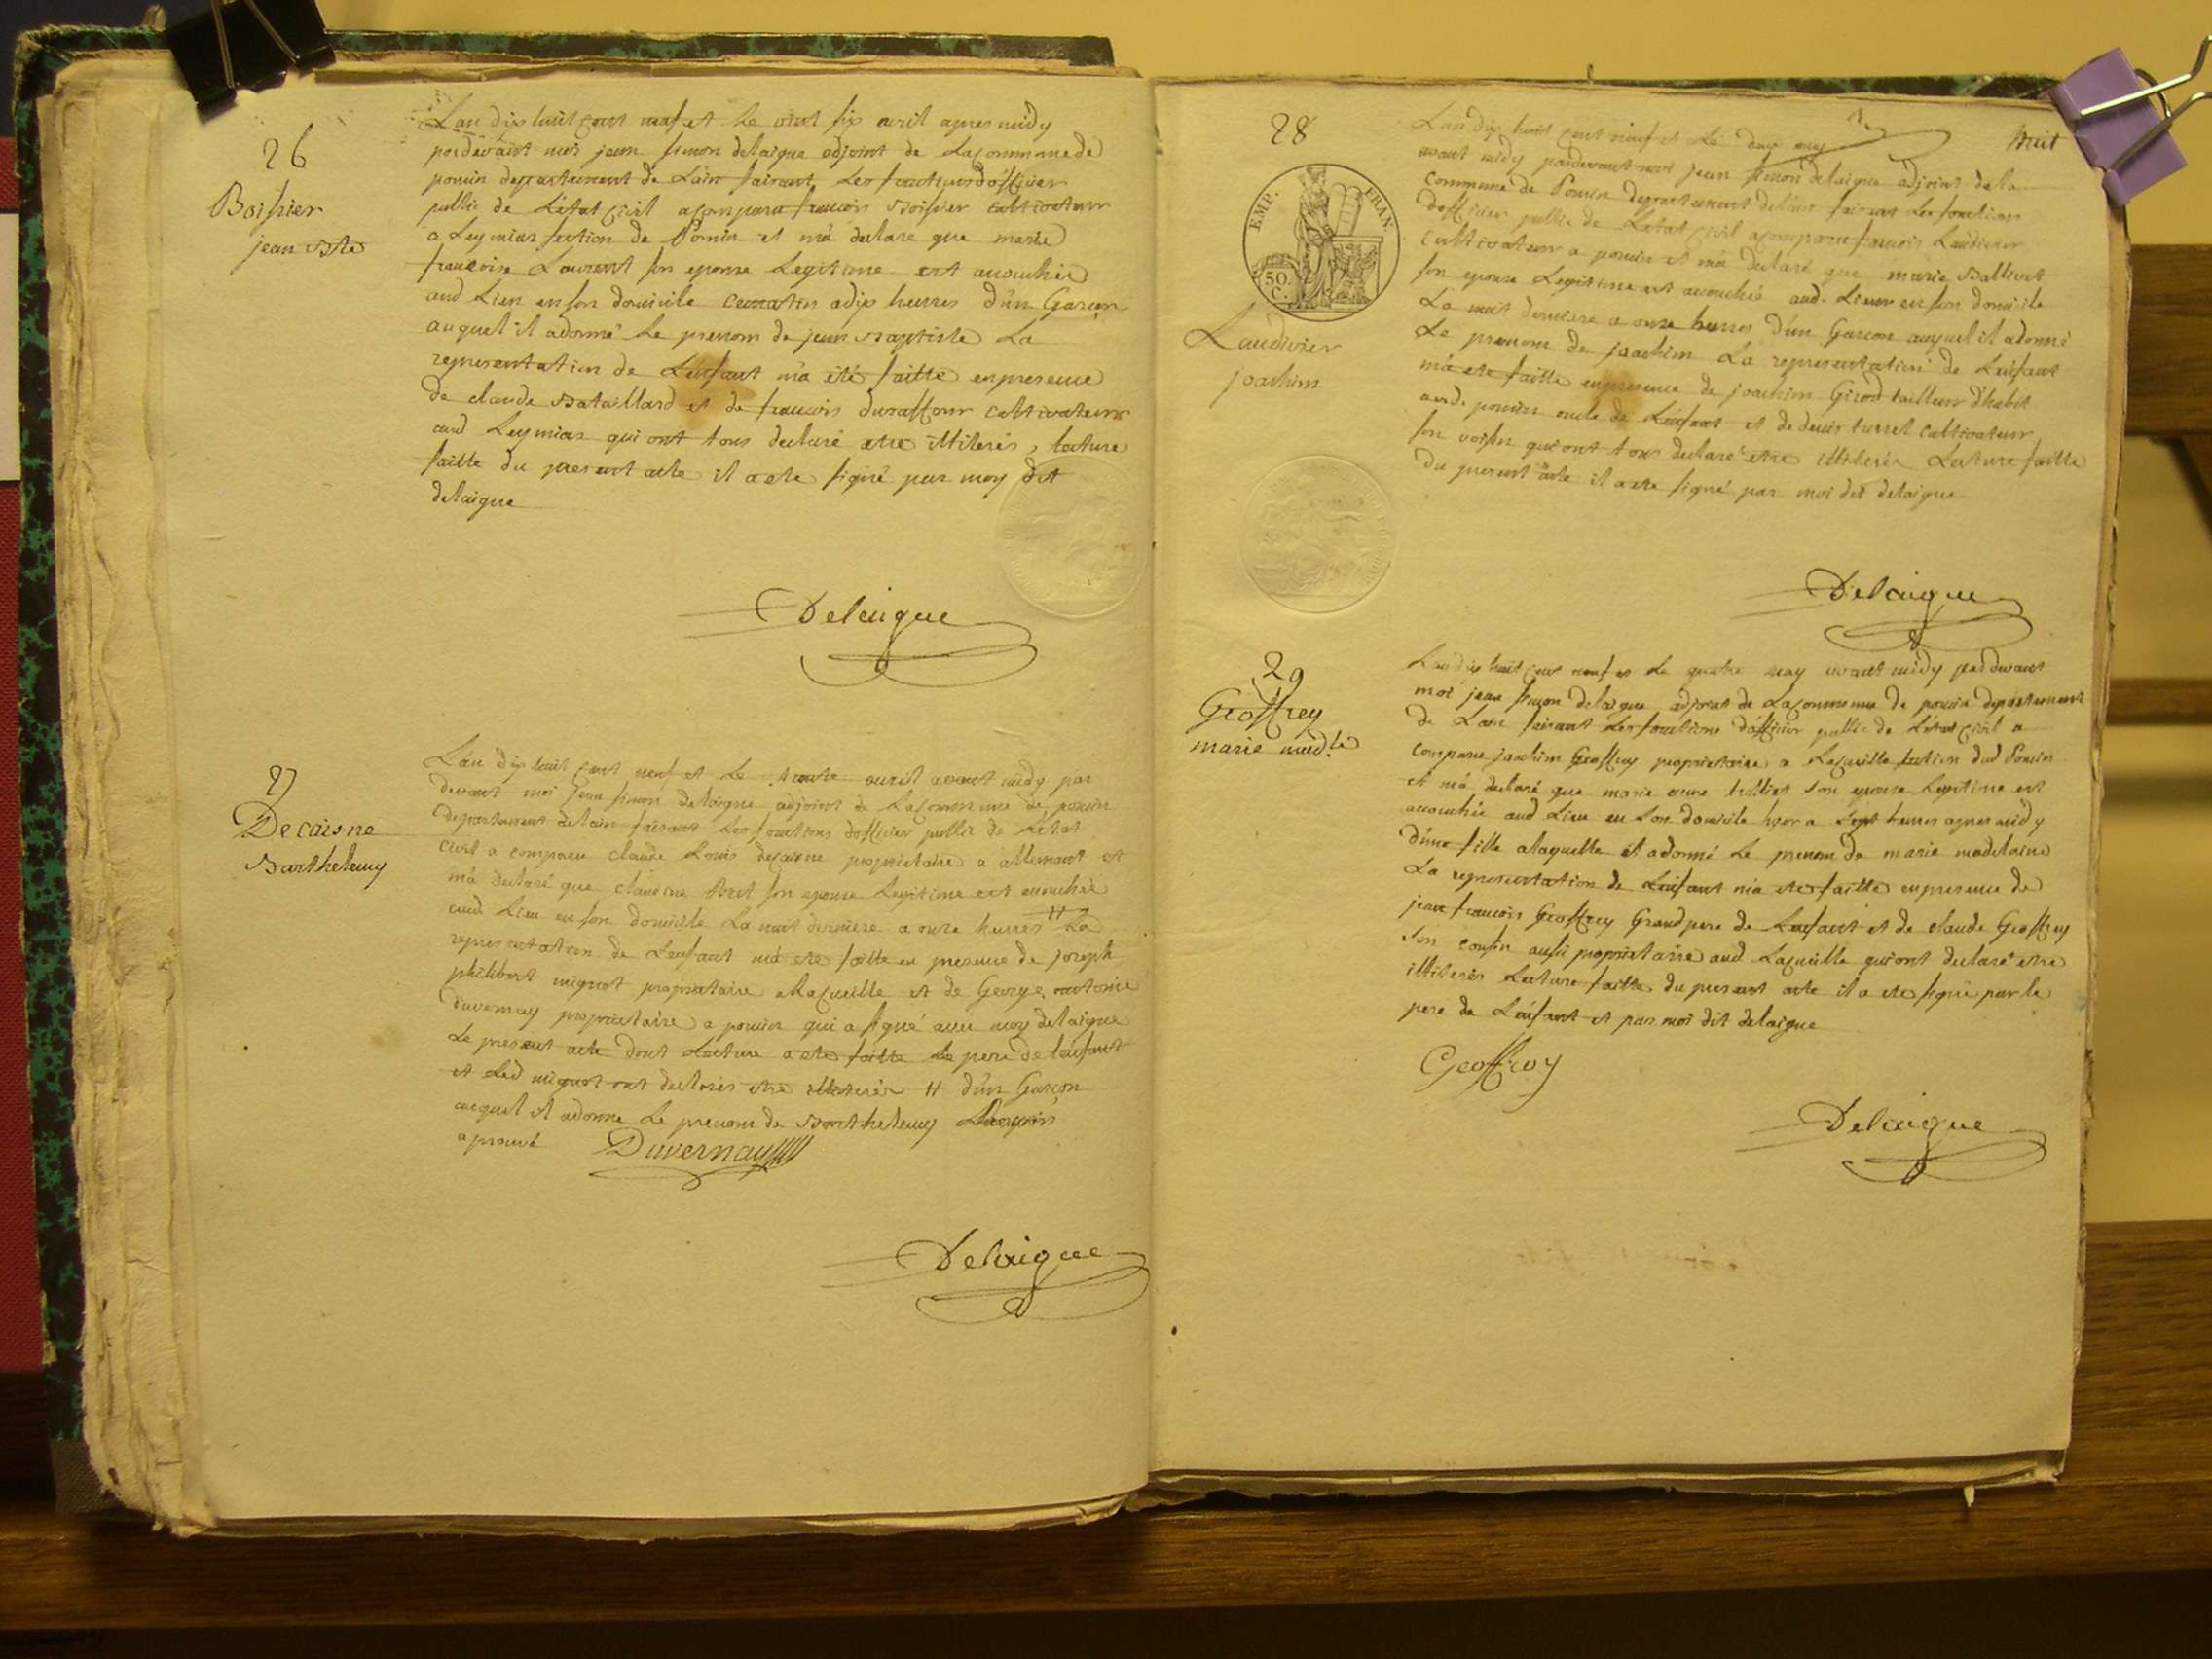 26
Boissier
jean Bte
L'an dix huit cent neuf et le vint six avril apres midy
pardevant moi jean simon delaigue adjoint de la commune de
poncin departement de Lain faisant les fonctions d'officier
public de L'état civil a comparu francois Boissier cultivateur
a Leymiar section de Poncin et m'a declaré que marie
francoise Laurent son epouse Legitime est accouchée
aud Lieu en son domicile ce matin a dix heures d'un Garcon
auquel il a donné Le prenom de jean Baptiste La
representation de L'enfant m'a été faitte en presence
de claude Bataillard et de francois duraffour cultivateurs
aud Leymiar qui ont tous declaré etre illiterés, lecture
faitte du present acte il a ete signé par moy dit
delaigue
Delaigue
27
Decaisne
Barthelemy
L'an dix huit cent neuf et Le trente avril avant midy par
devant moi jean simon delaigue adjoint de La commune de poncin
departement de Lain faisant Les fonctions d'officier public de L'état
civil a comparu claude Louis decaisne proprietaire a allement et
m'a declaré que claudine son epouse Legitime est accouchée
aud. Lieu en son domicille La nuit derniere a onze heures # La
representation de L'enfant m'a ete faitte en presence de joseph
philibert mignot proprietaire a La cueille et de George antoine
duvernay proprietaire a poncin qui a signé avec moy delaigue
Le present acte dont Lecture a ete faitte Le pere de lenfant
et Led mignot ont declarés etre illiterés # d'un Garcon
auquel il a donné Le prenom de Barthelemy
aprouvé
Duvernay
Delaigue
28
huit
EMP. FRAN.
50. C.
Laudivier
joachim
L'an dix huit cent neuf et Le deux may
avant midy pardevant moi jean simon delaigue adjoint de la
commune de Poncin departement de Lain faisant Les fonctions
d'officier public de L'état civil a comparu francois Laudivier
cultivateur a poncin et m'a declaré que marie Ballivet
son epouse Legitime est accouchée aud. Lieu en son domicile
La nuit derniere a onze heures d'un Garcon auquel il a donné
Le prenom de joachim La representation de L'enfant
m'a ete faitte en presence de joachim Girod tailleur d'habit
aud. poncin oncle de L'enfant et de denis turrel cultivateur
son voisin qui ont tous declaré etre illiterés Lecture faitte
du present acte il a ete signé par moi dit delaigue
Delaigue
29
Geoffrey
marie mad.le
L'an dix huit cent neuf et Le quatre may avant midy pardevant
moi jean simon delaigue adjoint de La commune de poncin departement
de Lain faisant Les fonctions d'officier public de L'état civil a
comparu joachim Geoffrey proprietaire a La cueille section dud Poncin
et m'a declaré que marie anne son epouse Legitime est
accouchée aud Lieu en son domicile hyer a sept heures apres midy
d'une fille a laquelle il a donné Le prenom de marie madelaine
La representation de L'enfant m'a ete faitte en presence de
jean francois Geoffrey Grand pere de L'enfant et de claude Geoffrey
son cousin aussi proprietaire aud. Lacueille qui ont declaré etre
illiterés Lecture faitte du present acte il a ete signé par le
pere de L'enfant et par moi dit delaigue
Geoffroy
Delaigue